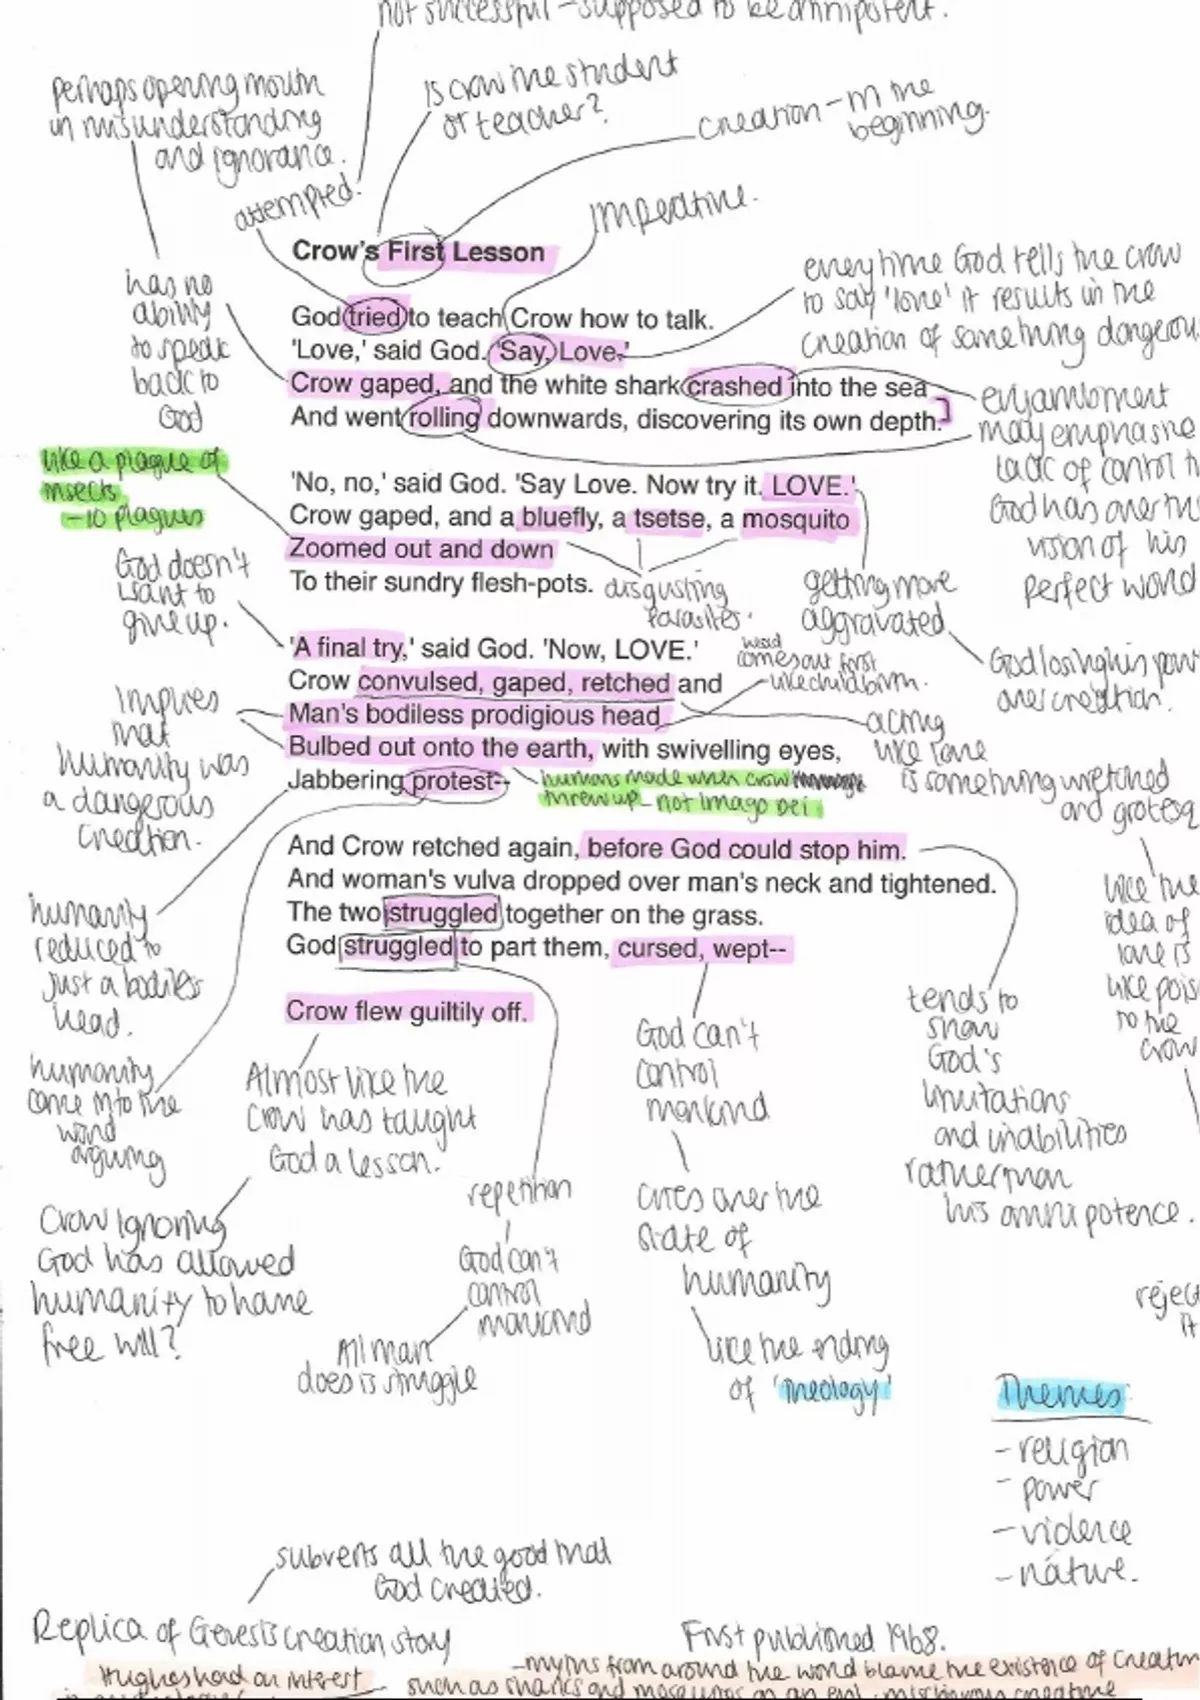 not successful - supposed to be omnipotent.
perhaps opening mouth
in misunderstanding
and ignorance.
is crow the student
or teacher?
creation - in the
beginning.
attempted.
imperative.
Crow's First Lesson
God tried to teach Crow how to talk.
'Love,' said God. 'Say, Love.'
Crow gaped, and the white shark crashed into the sea
And went rolling downwards, discovering its own depth.
has no
ability
to speak
back to
God
every time God tells the crow
to say 'love' it results in the
creation of something dangerous
enjambment
may emphasise
lack of control
God has over
vision of his
perfect world
like a plague of
insects
- 10 plagues
'No, no,' said God. 'Say Love. Now try it. LOVE.'
Crow gaped, and a bluefly, a tsetse, a mosquito
Zoomed out and down
To their sundry flesh-pots.
disgusting
parasites.
getting more
aggravated
God losing his
over creation.
God doesn't
want to
give up.
'A final try,' said God. 'Now, LOVE.'
Crow convulsed, gaped, retched and
Man's bodiless prodigious head
Bulbed out onto the earth, with swivelling eyes,
Jabbering protest--
comes out first
like childbirth.
acting
like love
is something wretched
and
humans made when crow
threw up - not Imago Dei
Implies
that
humanity was
a dangerous
creation.
And Crow retched again, before God could stop him.
And woman's vulva dropped over man's neck and tightened.
The two struggled together on the grass.
God struggled to part them, cursed, wept--
Crow flew guiltily off.
humanity
reduced to
just a bodiless
head.
humanity
came into the
world
arguing
like the
idea of
love is
like
to the
crow
tends to
show
God's
limitations
and inabilities
rather than
his omnipotence.
Almost like the
crow has taught
God a lesson.
Crow ignoring
God has allowed
humanity to have
free will?
repetition
God can't
control
mankind
All man
does is struggle
God can't
control
mankind
cries over the
state of
humanity
like the ending
of 'Theology'
it
Themes:
- religion
- power
- violence
- nature.
subverts all the good that
God created.
Replica of Genesis creation story
First published 1968.
Hughes had an interest
- myths from around the world blame the existence of
such as sharks and mosquitos on an evil, mischievous creature